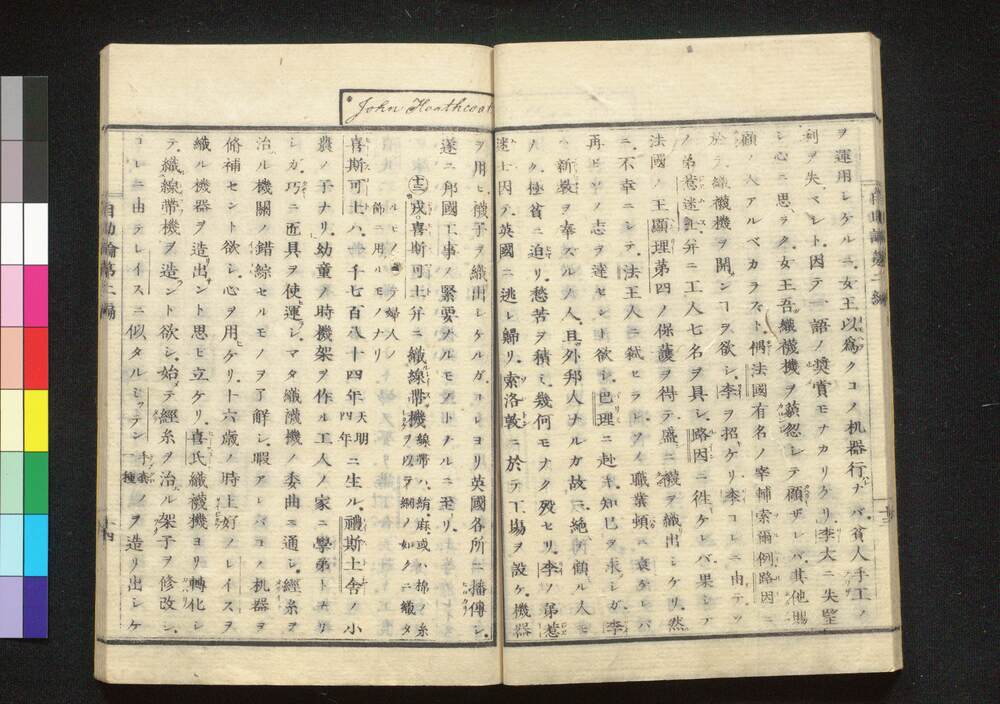 ヲ運用シケルニ、女王以爲クコノ机器行ナバ、貧人手工ノ
利ヲ失ベシト、因テ一語ノ奬賞モナカリケリ、李大ニ失望
シ心ニ思ラク、女王吾織襪機ヲ藐忽シテ顧ザレバ、其他賜
顧ノ人アルベカラズト、偶法國有名ノ宰輔索爾例路因ニ
於テ織襪機ヲ開ンコヲ欲シ、李ヲ招ケリ、李コレニ由テソ
ノ弟惹迷士幷ニ工人七名ヲ具シ、路因ニ徃ケレバ、果シテ
法國ノ王顯理第四ノ保護ヲ得テ、盛ニ襪ヲ織出シケリ、然
ニ不幸ニシテ、法王人ニ弑セラレ、ソノ職業頓ニ衰ケレバ
再ビソノ志ヲ達セント欲シ、巴理ニ赴キ、知己ヲ求シガ、李
ハ新敎ヲ奉ズルノ人、且外邦人ナルガ故ニ、絶テ顧ル人モ
ナク、極貧ニ迫リ、愁苦ヲ積ミ、幾何モナク歿セリ、李ノ弟惹
迷士因テ英國ニ逃レ歸リ、索洛敦ニ於テ工塲ヲ設ケ、機器
John Heathcoat
ヲ用ヒ襪子ヲ織出シケルガ、コレヨリ英國各所ニ播傳シ、
遂ニ邦國工事ノ緊要ナルモノトナルニ至リ、
十三 戎喜斯可土幷ニ織線帶機 線帶ハ、絹麻或ハ棉ノ糸ヲ以テ網ノ如クニ織タルモノニテ婦人ノ飾ニ用ルモノナリ
喜斯可土ハ、一千七百八十四年 天明四年 ニ生ル、禮斯土舍ノ小
農ノ子ナリ、幼童ノ時機架ヲ作ル工人ノ家ニ學弟トナリ
シガ、巧ニ匠具ヲ使運シ、マタ織襪機ノ委曲ニ通シ、經糸ヲ
治ル機關ノ錯綜セルモノヲ了解シ、暇アレバコノ机器ヲ
脩補セント欲シ、心ヲ用ケリ、十六歳ノ時上好ノレイスヲ
織ル機器ヲ造出ント思ヒ立ケリ、喜氏織襪機ヨリ轉化シ
テ、織線帶機ヲ造ント欲シ、始テ經糸ヲ治ル架子ヲ修改シ、
コレニ由テレイスニ似タルミッテン 手套ノ一種 ヲ造リ出シケ
自助論第二編
自助論第二編
十三
十四